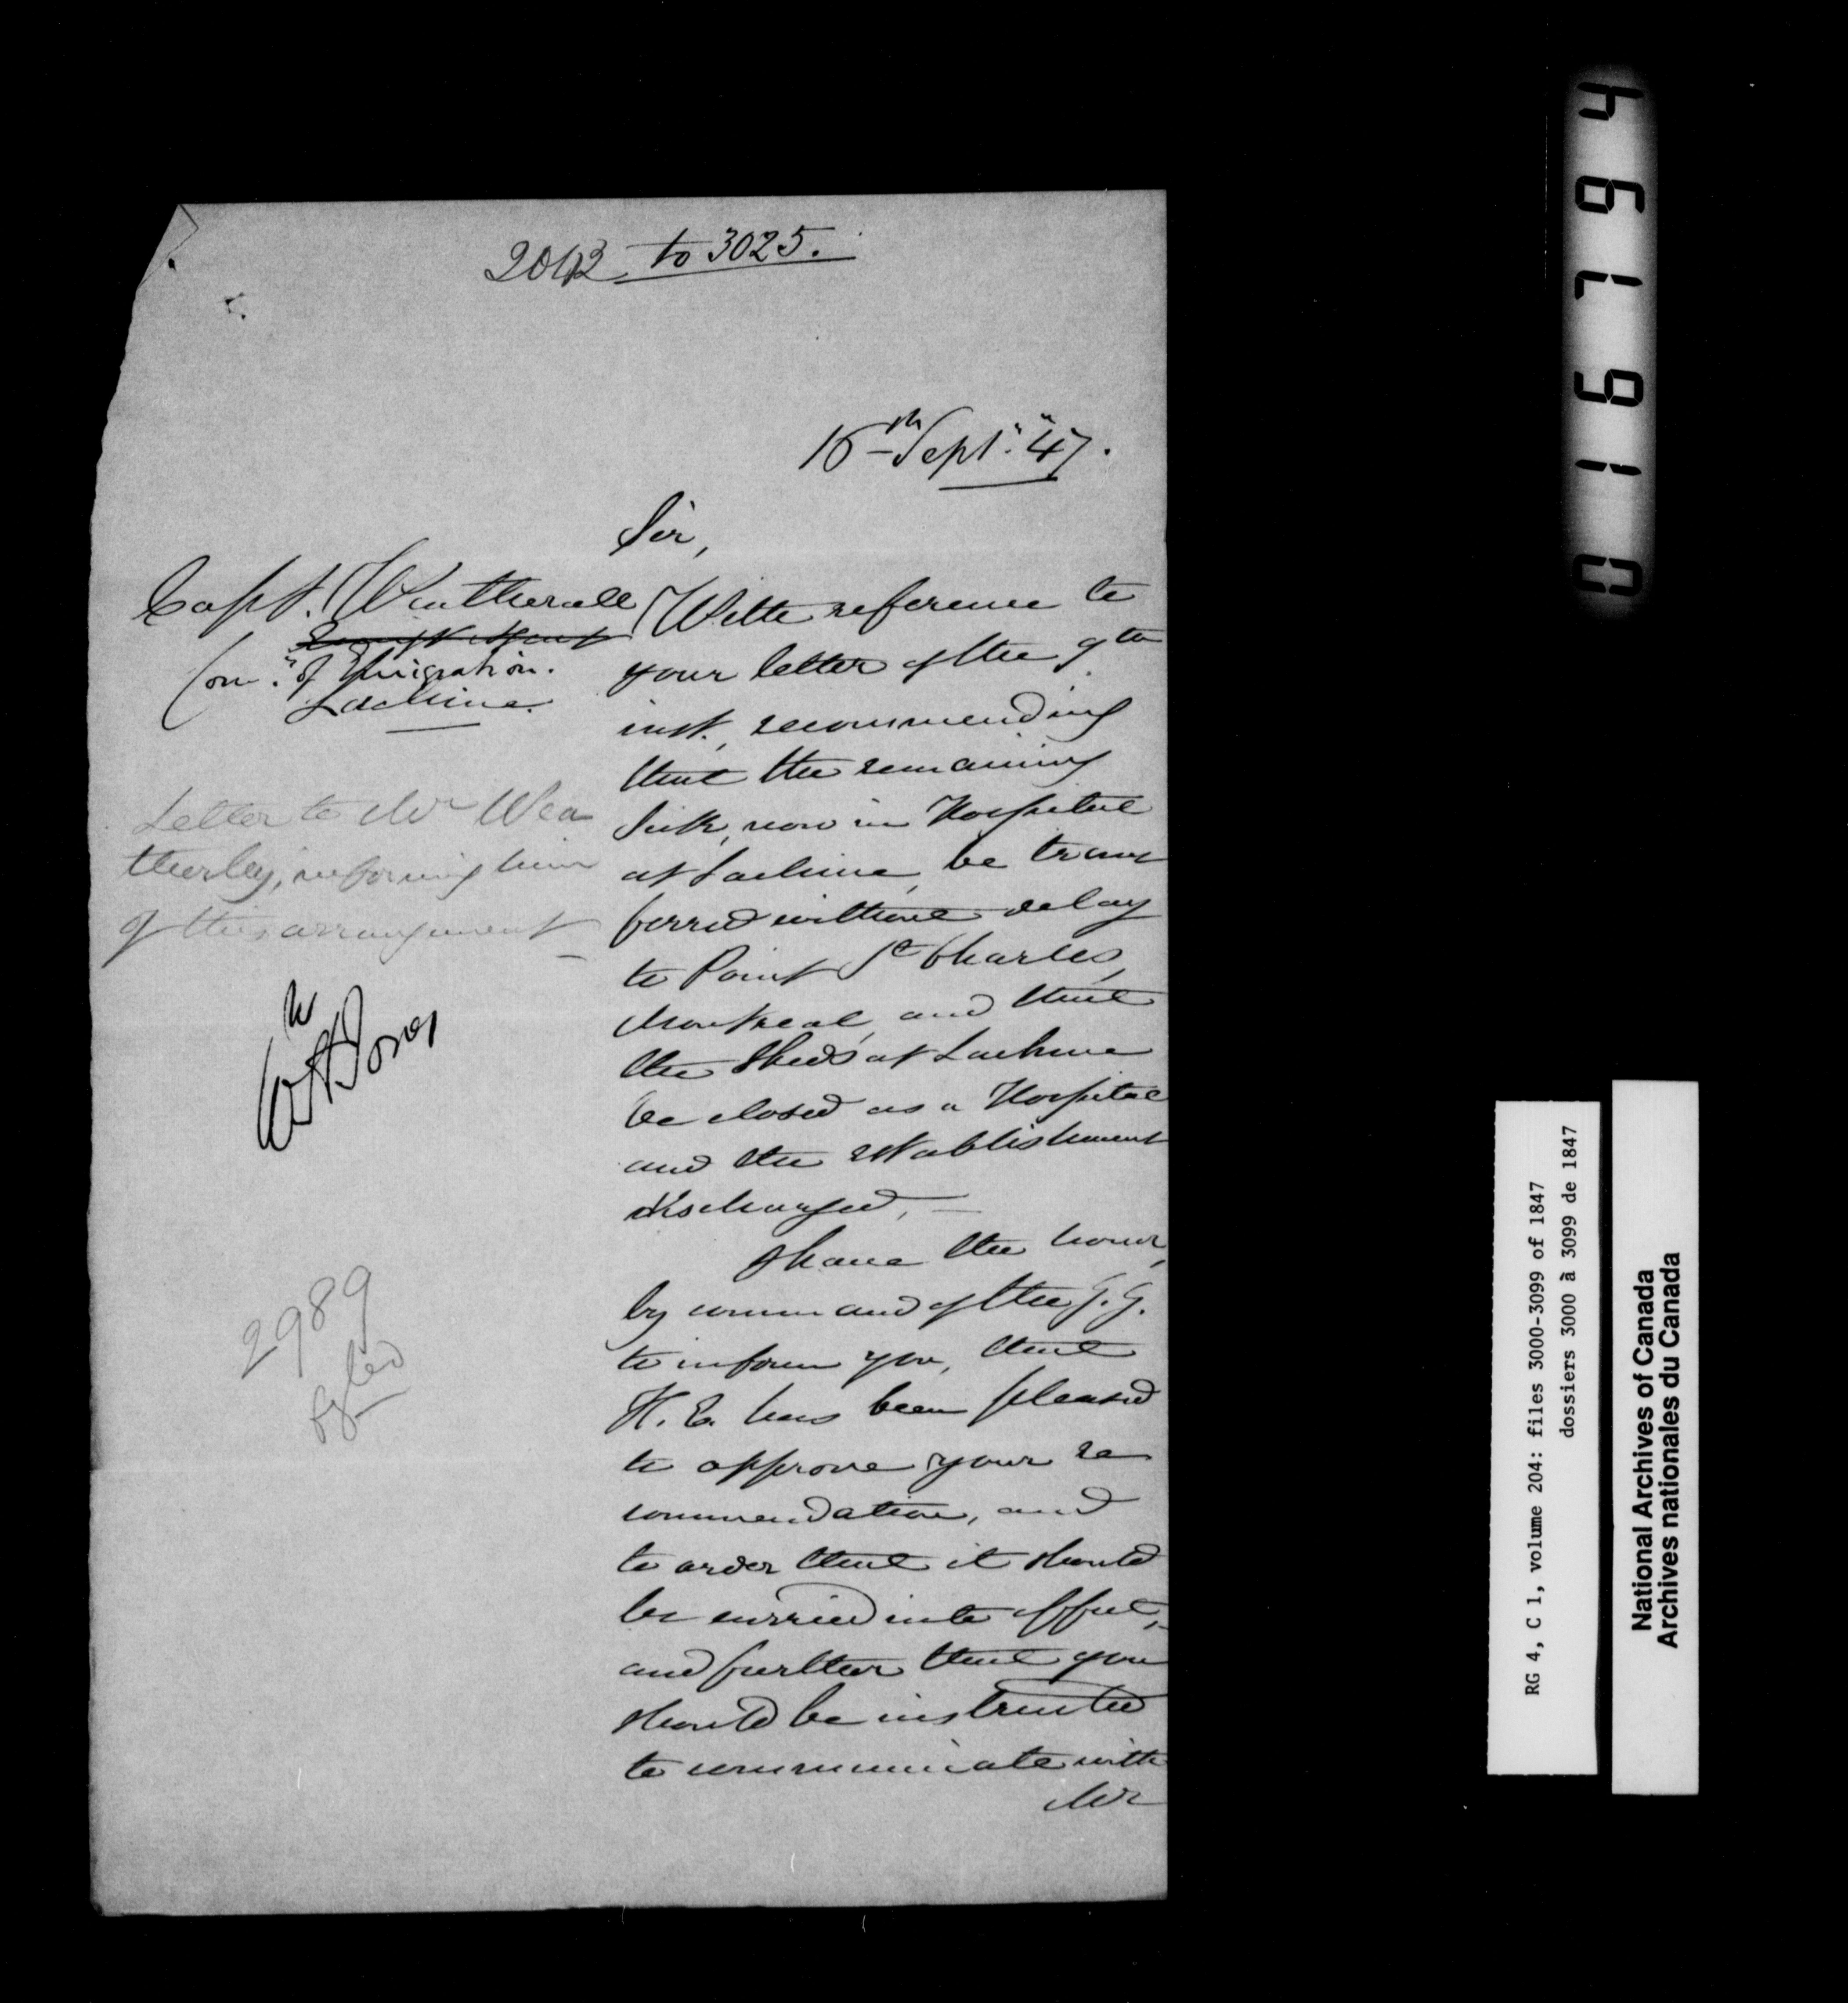 2042 to 3025.
16th Sept. "47.
Sir,
Capt. Weatherall
Emigt Agent
Comr. of Emigration.
Lachine.
With reference to
your letter of the 9th
inst., recommending
that the remaining
sick, now in Hospital
at Lachine, be trans
ferred without delay
to Point St Charles,
Montreal, and that
the Sheds at Lachine
be closed as a Hospital
and the establishment
discharged, —
I have the honor,
by command of the G. G.
to inform you, that
H. E. has been pleased
to approve your re
commendation, and
to order that it should
be carried into effect,
and further that you
should be instructed
to communicate with
Mr
Letter to Mr Wea
therley, informing him
of this arrangement —
W
Jones
2989
National Archives of Canada
Archives nationales du Canada
RG 4, C 1, volume 204: files 3000-3099 of 1847
dossiers 3000 à 3099 de 1847
019194